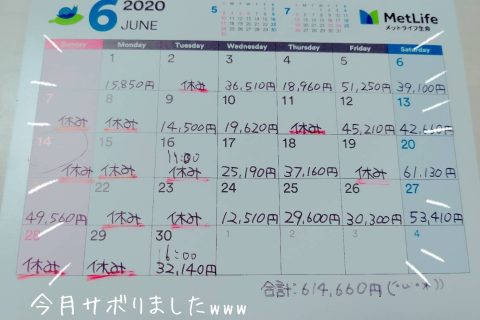 6 2020
JUNE
5
7
MetLife
メットライフ生命
Sunday Monday Tuesday Wednesday Thursday Friday Saturday
1 2 3 4 5 6
15,850円 休み 36,510円 18,960円 51,250円 39,100円
7 8 9 10 11 12 13
休み 休み 14,500円 19,620円 休み 45,210円 42,660円
14 15 16 17 18 19 20
11:00
休み 休み 休み 25,190円 37,160円 休み 61,130円
22 23 24 25 26 27
49,560円 休み 休み 12,510円 29,600円 30,300円 53,410円
28 29 30 1 2 3 4
16:00
休み 休み 32,140円
合計:614,660円
今月サボりましたwww